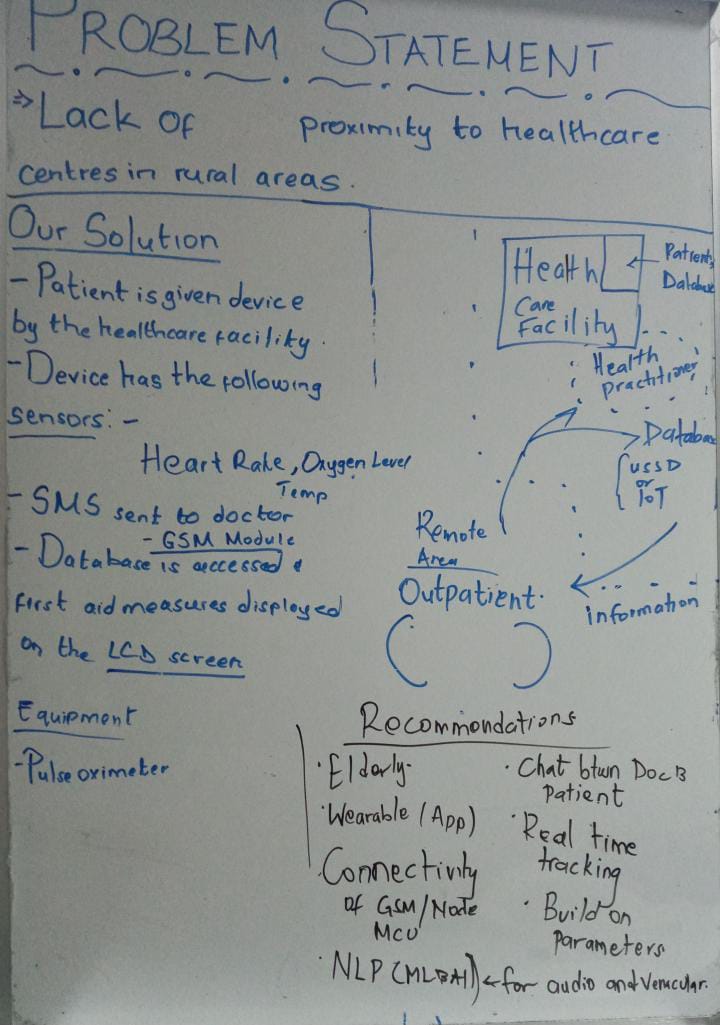 PROBLEM STATEMENT
⇒ Lack of proximity to healthcare
centres in rural areas.
Our Solution
- Patient is given device
by the healthcare facility.
- Device has the following
sensors: -
Heart Rate, Oxygen Level
Temp
- SMS sent to doctor
- GSM Module
- Database is accessed &
first aid measures displayed
on the LCD screen
Equipment
- Pulse oximeter
Health
Care
Facility
Patients
Database
Health
practitioner
Database
USSD
or
IoT
Remote
Area
Outpatient.
information
Recommondations
· Elderly
· Wearable (App)
Connectivity
of GSM/Node
MCU
· NLP (ML & AI) ← for audio and Venacular.
· Chat btwn Doc &
Patient
· Real time
tracking
· Build on
Parameters